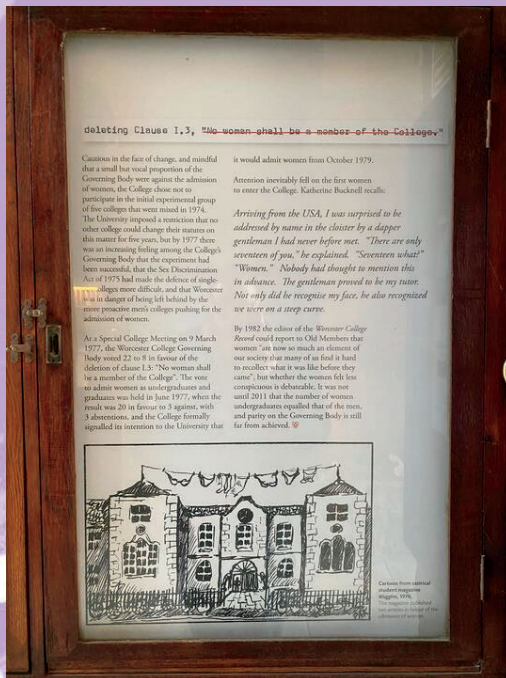 deleting Clause I,3, "No woman shall be a member of the College."
Cautious in the face of change, and mindful
that a small but vocal proportion of the
Governing Body were against the admission
of women, the College chose not to
participate in the initial experimental group
of five colleges that went mixed in 1974.
The University imposed a restriction that no
other college could change their statutes on
this matter for five years, but by 1977 there
was an increasing feeling among the College's
Governing Body that the experiment had
been successful, that the Sex Discrimination
Act of 1975 had made the defence of single-
colleges more difficult, and that Worcester
was in danger of being left behind by the
more proactive men's colleges pushing for the
admission of women.
At a Special College Meeting on 9 March
1977, the Worcester College Governing
Body voted 22 to 8 in favour of the
deletion of clause I.3: "No woman shall
be a member of the College". The vote
to admit women as undergraduates and
graduates was held in June 1977, when the
result was 20 in favour to 3 against, with
3 abstentions, and the College formally
signalled its intention to the University that
it would admit women from October 1979.
Attention inevitably fell on the first women
to enter the College. Katherine Bucknell recalls:
Arriving from the USA, I was surprised to be
addressed by name in the cloister by a dapper
gentleman I had never before met. "There are only
seventeen of you," he explained. "Seventeen what?"
"Women." Nobody had thought to mention this
in advance. The gentleman proved to be my tutor.
Not only did he recognise my face, he also recognized
we were on a steep curve.
By 1982 the editor of the Worcester College
Record could report to Old Members that
women "are now so much an element of
our society that many of us find it hard
to recollect what it was like before they
came", but whether the women felt less
conspicuous is debateable. It was not
until 2011 that the number of women
undergraduates equalled that of the men,
and parity on the Governing Body is still
far from achieved.
Cartoon from satirical
student magazine
1976.
The magazine published
two articles in favour of the
admission of women.